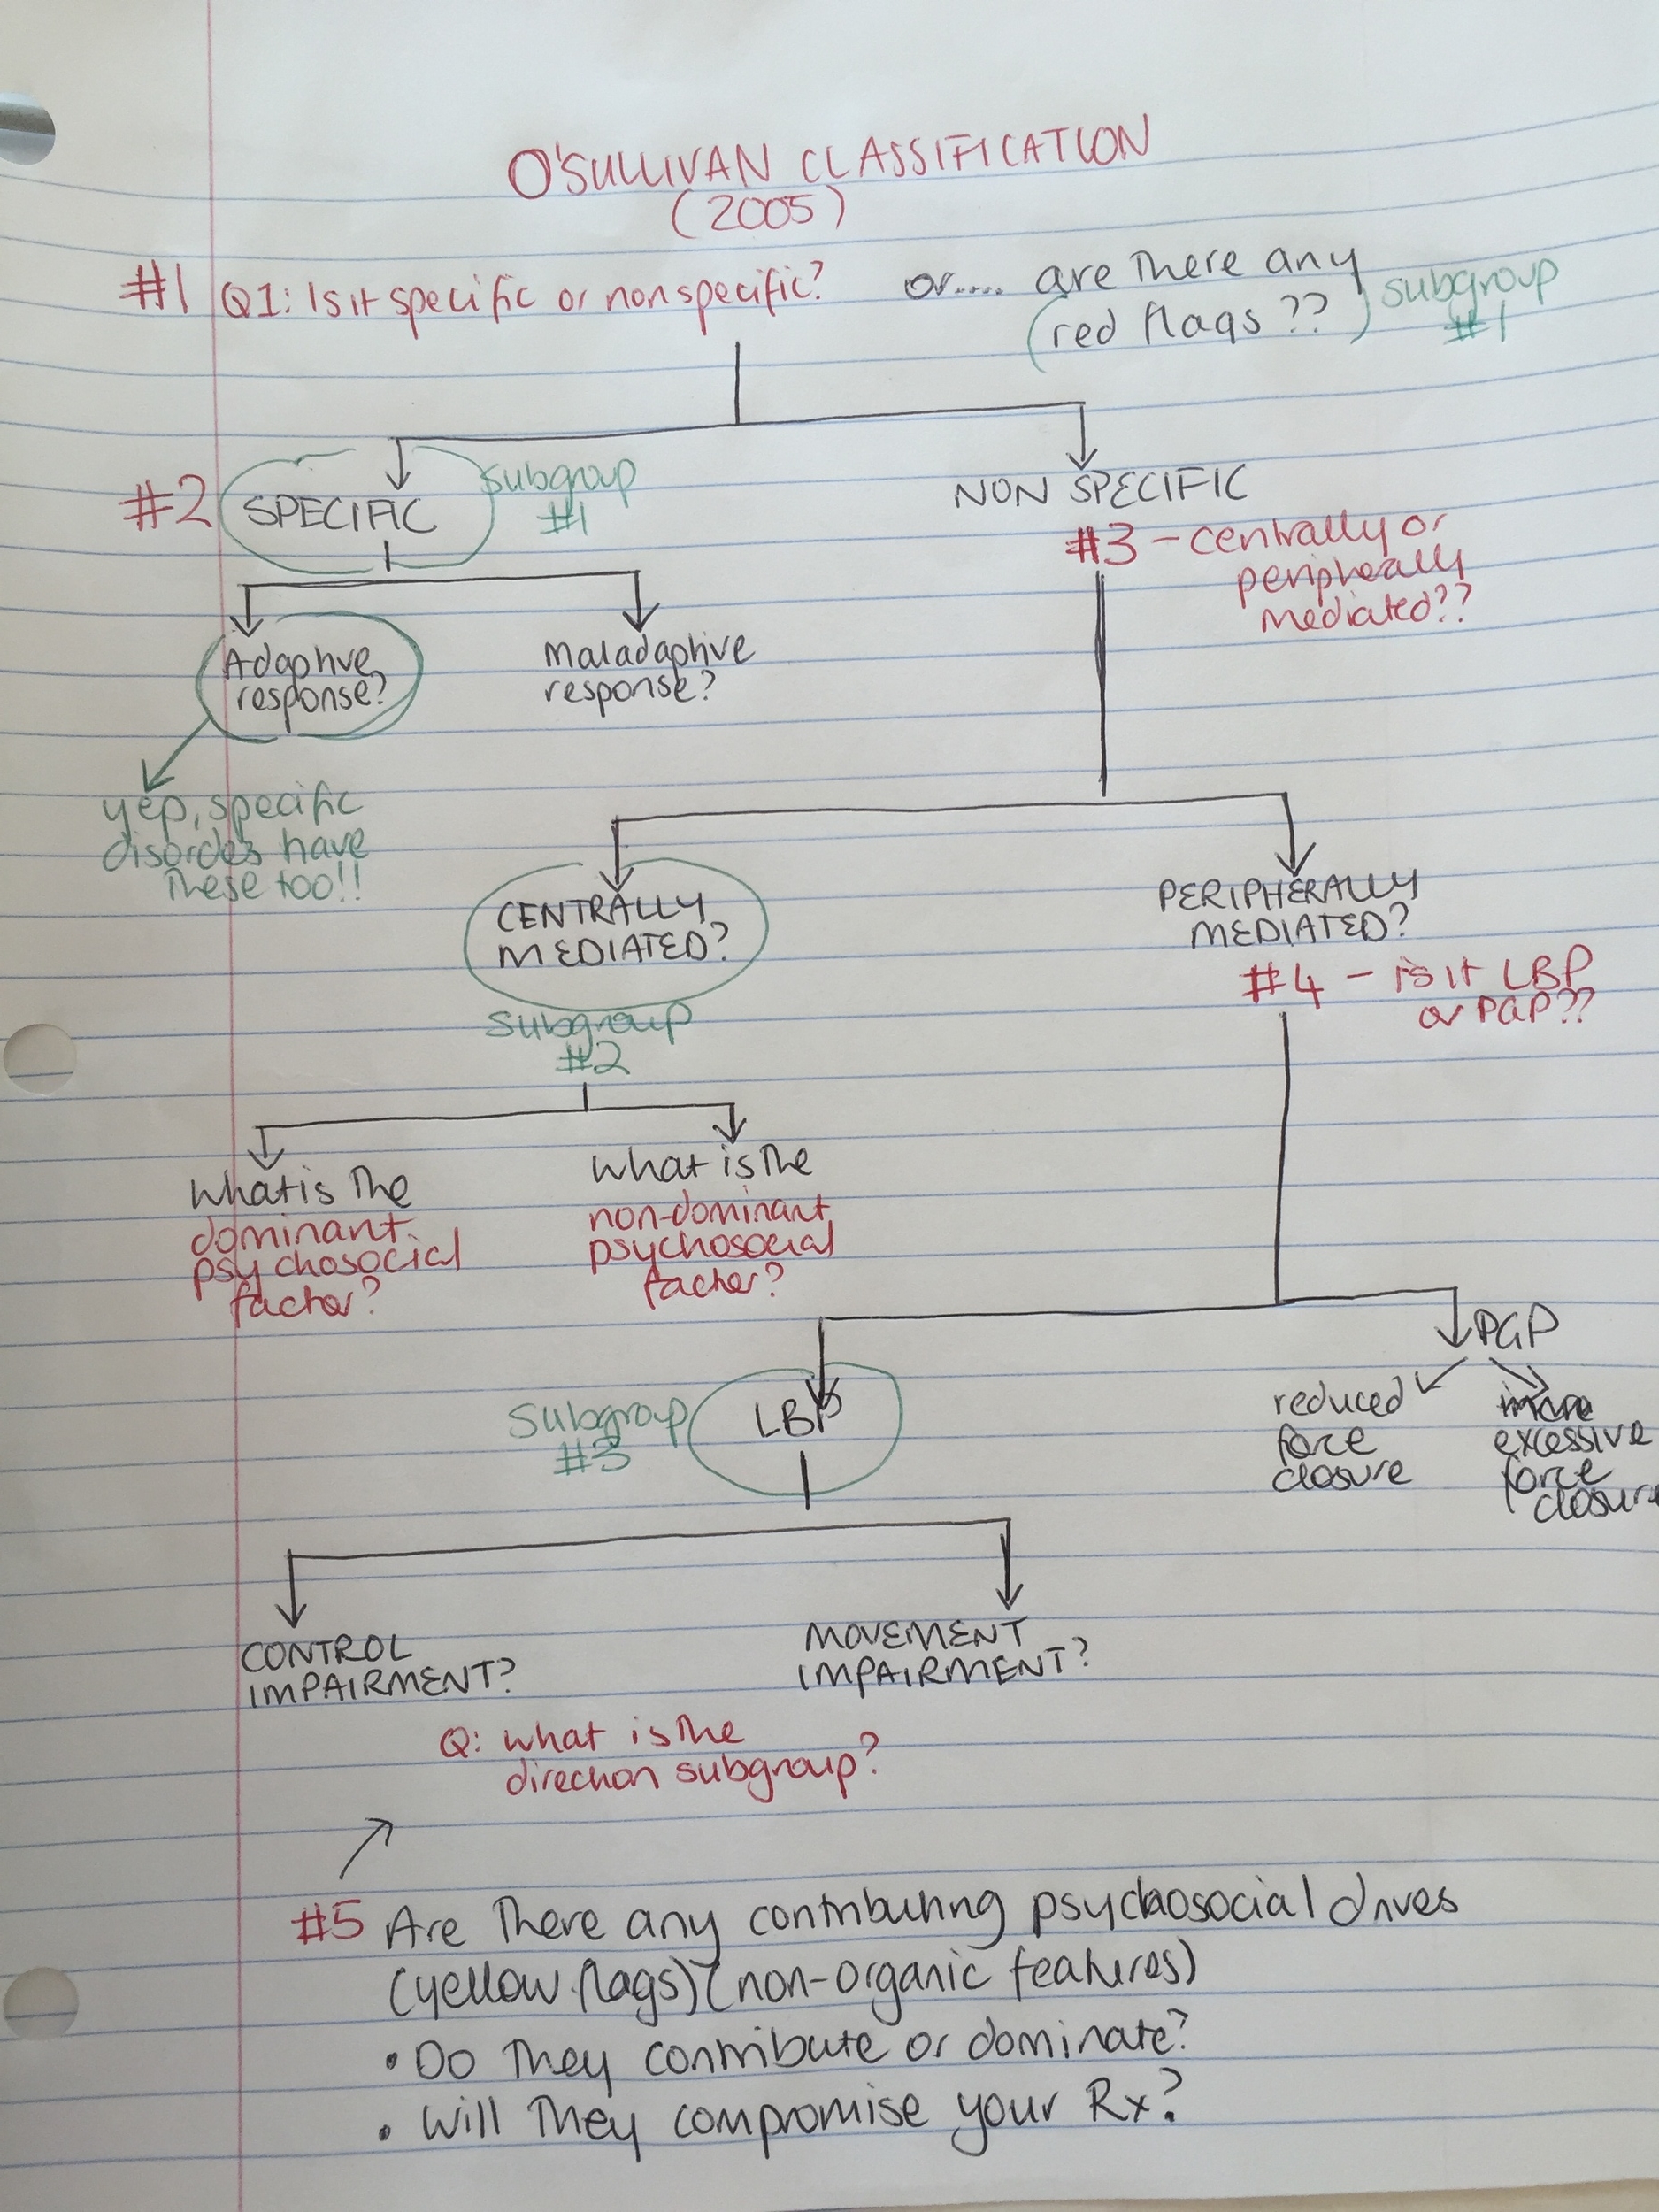 O'SULLIVAN CLASSIFICATION
(2005)
#1 Q1: Is it specific or nonspecific? or.... are there any
(red flags ??) subgroup
#1
#2 SPECIFIC subgroup
#1
NON SPECIFIC
#3 - centrally or
peripherally
mediated??
Adaptive
response?
Maladaptive
response?
yep, specific
disorders have
these too!!
CENTRALLY
MEDIATED?
subgroup
#2
PERIPHERALLY
MEDIATED?
#4 - is it LBP
or PGP??
What is the
dominant
psychosocial
factor?
What is the
non-dominant
psychosocial
factor?
PGP
reduced
force
closure
excessive
force
closure
Subgroup
#3
LBP
CONTROL
IMPAIRMENT?
MOVEMENT
IMPAIRMENT?
Q: what is the
direction subgroup?
#5 Are there any contributing psychosocial drives
(yellow flags) (non-organic features)
• Do they contribute or dominate?
• Will they compromise your Rx?